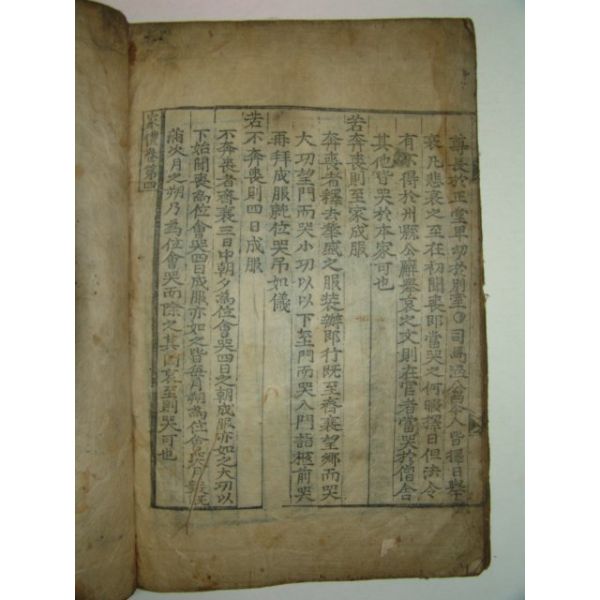 尊長於正堂卑幼於別室〇司馬溫公曰今人皆擇日舉
哀凡悲哀之至在初聞喪即當哭之何暇擇日但法令
有不得於州縣公廨舉哀之文則在官者當哭於僧舍
其他皆哭於本家可也
若奔喪則至家成服
奔喪者釋去華盛之服裝辦即行既至齊衰望鄉而哭
大功望門而哭小功以以下至門而哭入門詣柩前哭
再拜成服就位哭吊如儀
若不奔喪則四日成服
不奔喪者齊衰三日中朝夕為位會哭四日之朝成服亦如之大功以
下始聞喪為位會哭四日成服亦如之皆每月朔為位會哭月數旣
滿次月之朔乃為位會哭而除之其間哀至則哭可也
家禮卷第四